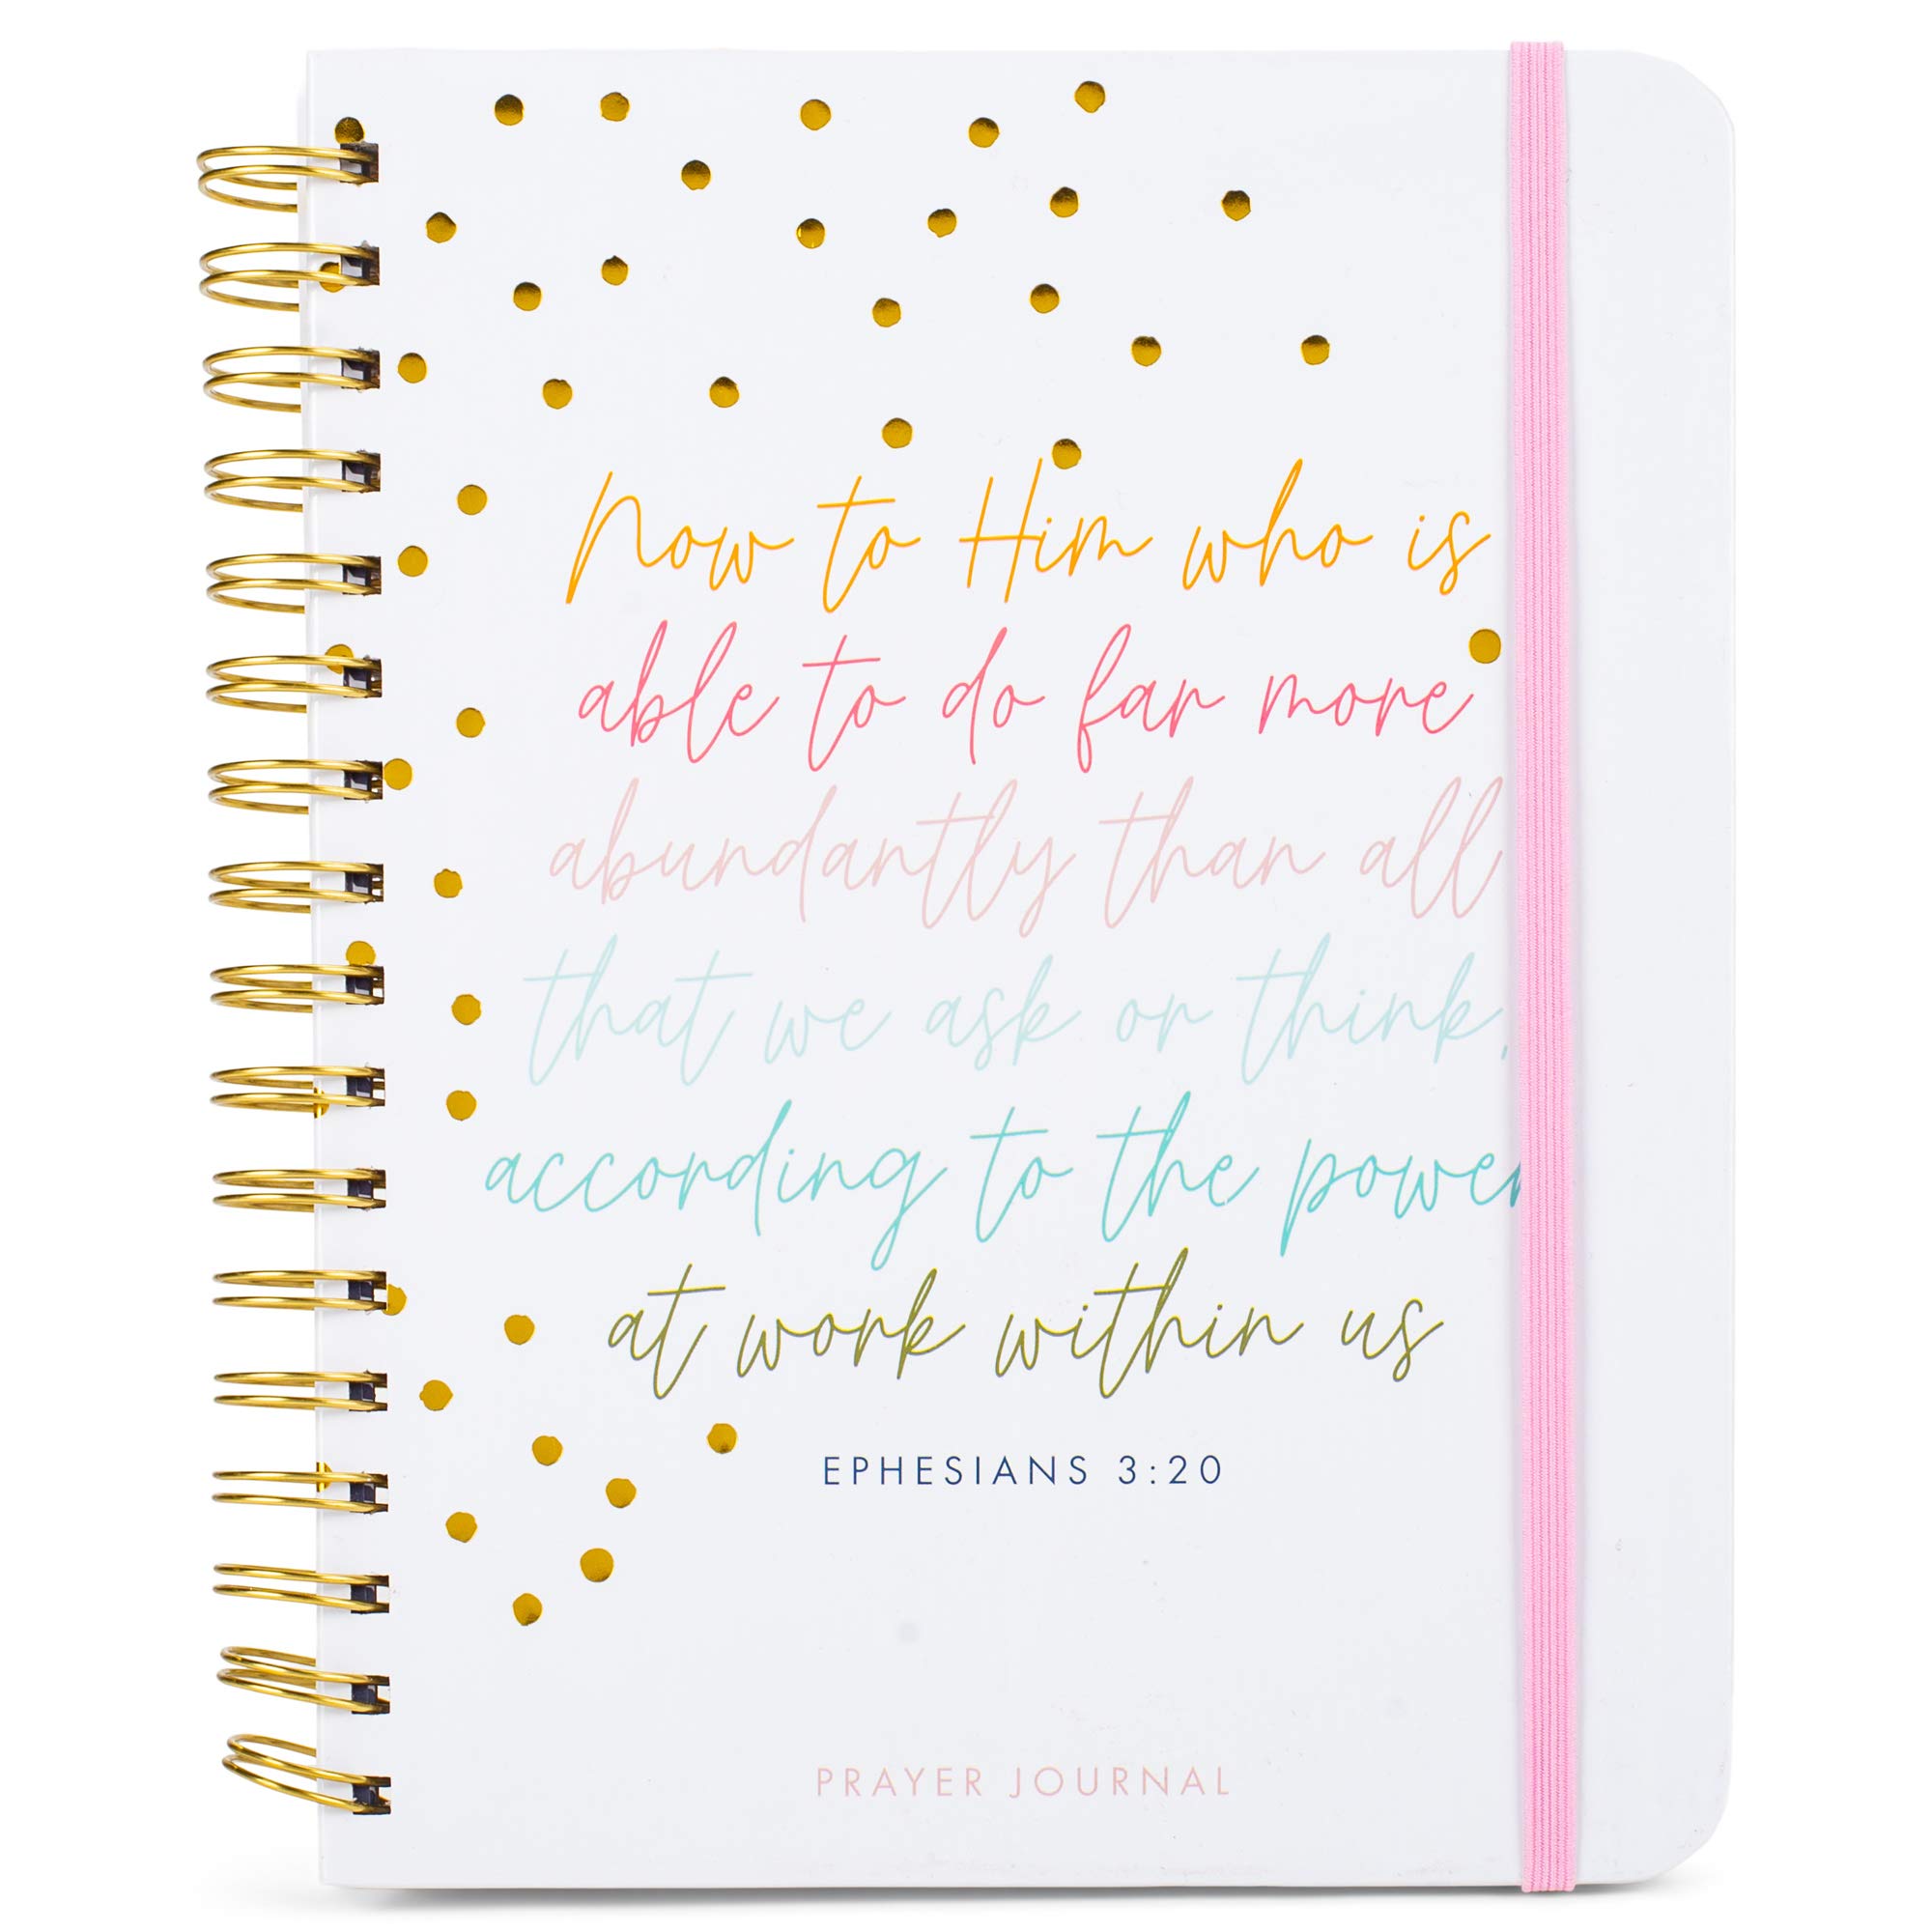 Now to Him who is
able to do far more
abundantly than all
that we ask or think,
according to the power
at work within us
EPHESIANS 3:20
PRAYER JOURNAL